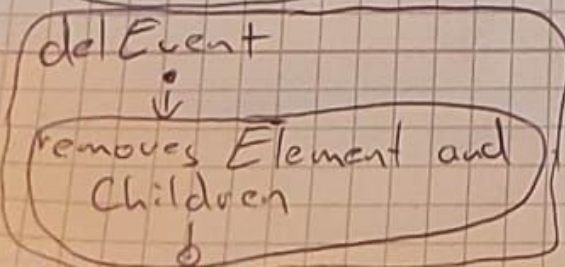 delEvent
removes Element and
Children